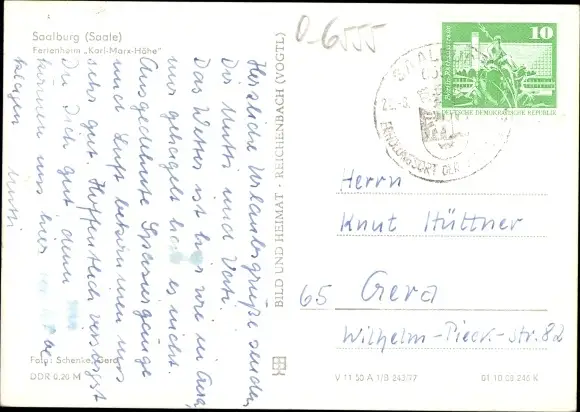 Saalburg (Saale)
Ferienheim „Karl-Marx-Höhe"
O-6555
10
DEUTSCHE DEMOKRATISCHE REPUBLIK
SAALBURG
ERHOLUNGSORT DER
Herzliche Urlaubsgrüße senden
Dir Mutti und Vati.
Das Wetter ist hier wie in Gera,
nur gehagelt es nicht.
Ausgedehnte Spaziergänge
und Luft bekommen uns
sehr gut. Hoffentlich versorgst
Du Dich gut denn
können uns hier
klagen
Mutti
BILD UND HEIMAT · REICHENBACH (VOGTL)
Herrn
Knut Hüttner
65 Gera
Wilhelm-Pieck-Str. 82
Foto: Schenke, Gera
DDR 0,20 M
V 11 50 A 1/B 243/77
01 10 08 246 K